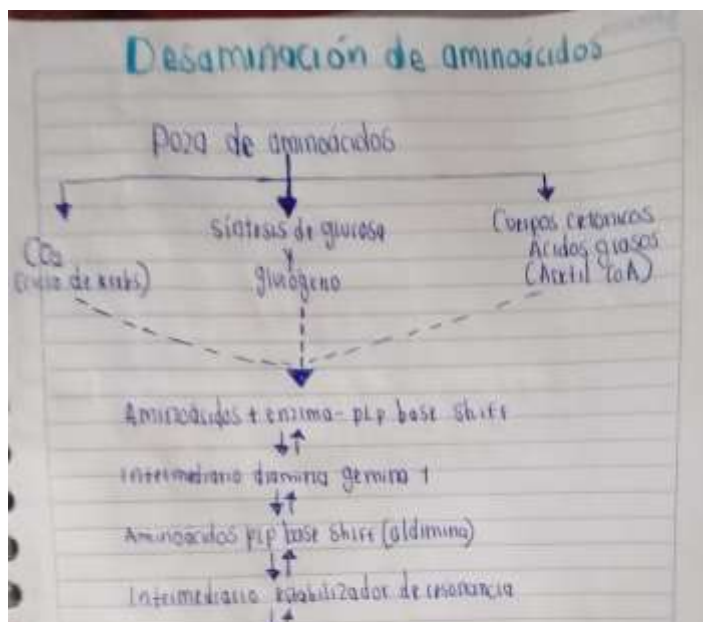 Desaminación de aminoácidos
Poza de aminoácidos
CO2
(ciclo de Krebs)
Síntesis de glucosa
y
glucógeno
Cuerpos cetónicos
Ácidos grasos
(Acetil CoA)
Aminoácidos + enzima - PLP base Shiff
Intermediario diamina gemina 1
Aminoácidos PLP base Shiff (aldimina)
Intermediario estabilizador de resonancia